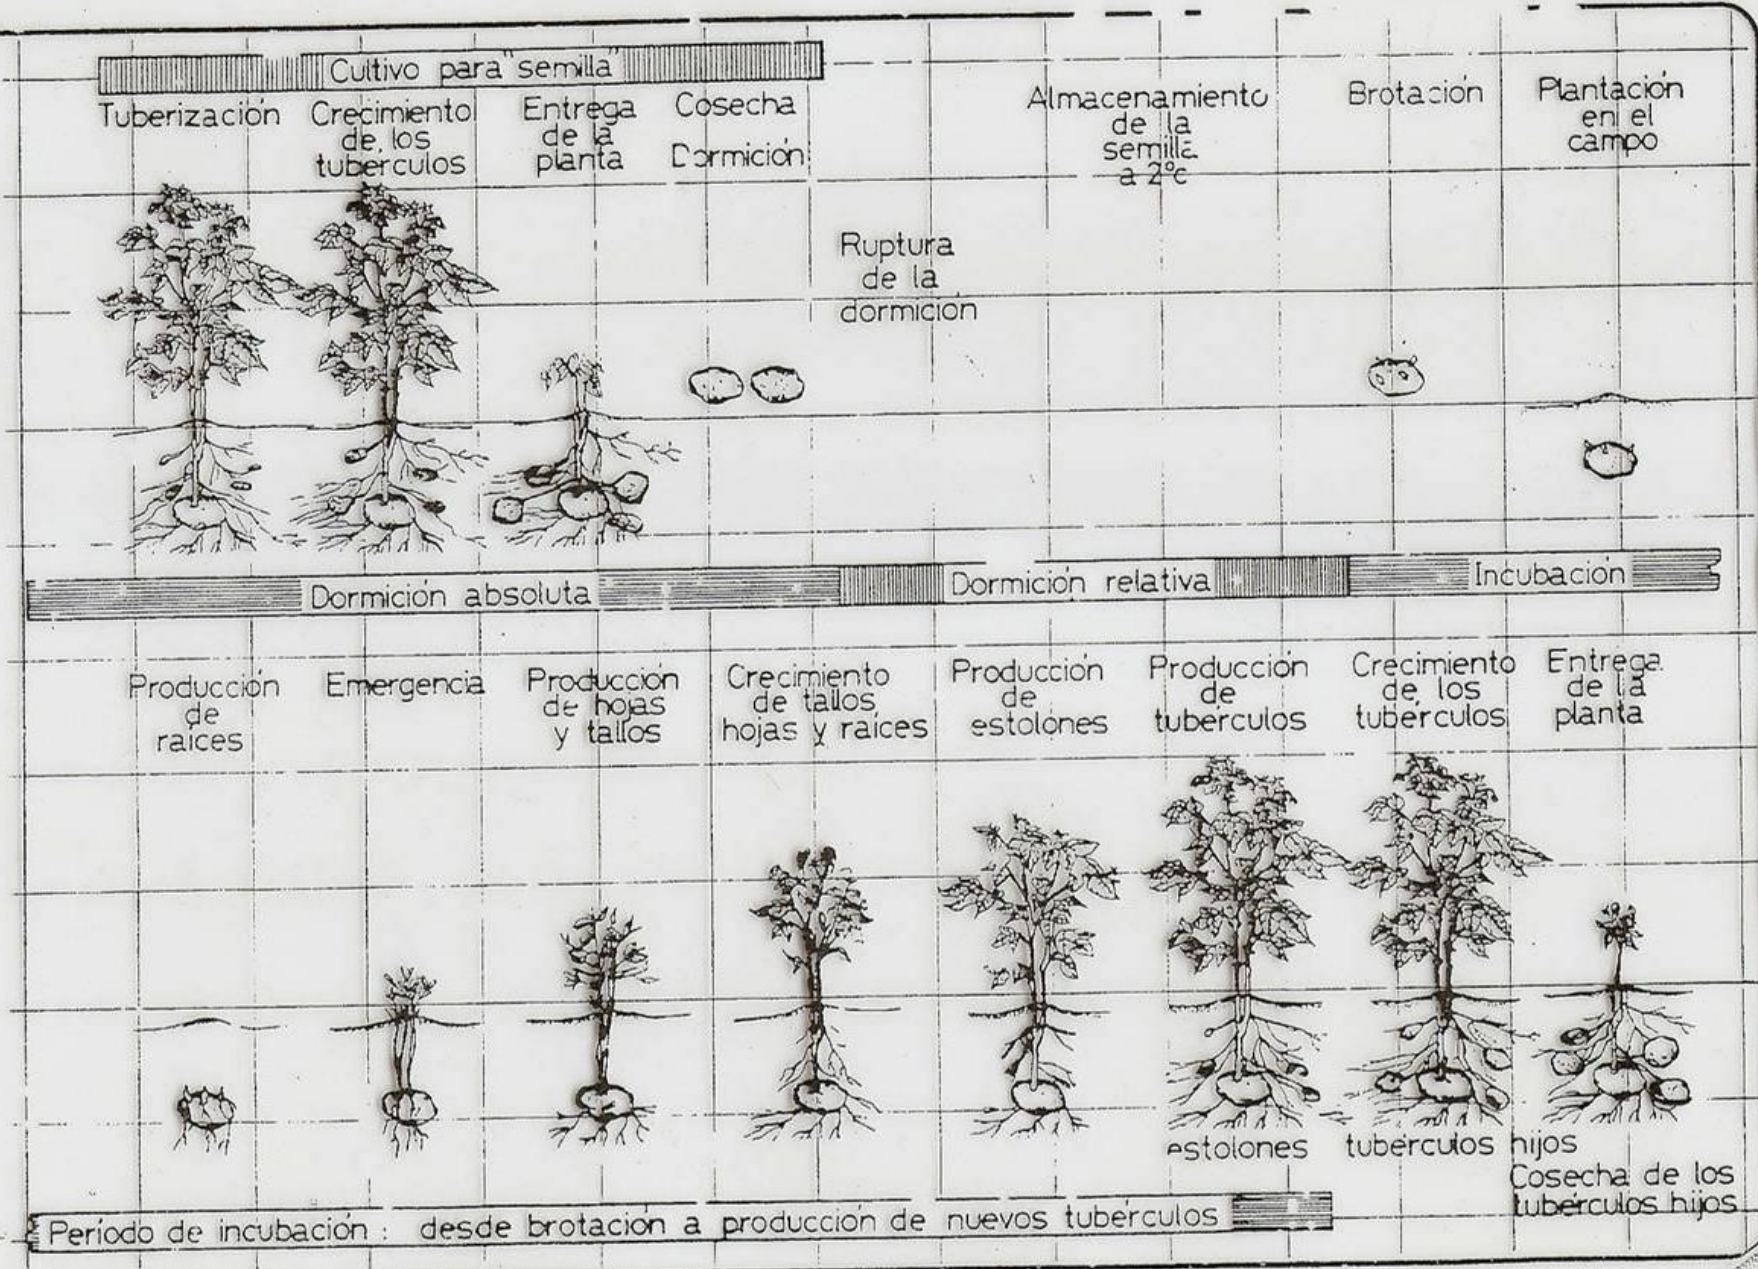 Cultivo para "semilla"
Tuberización
Crecimiento
de los
tubérculos
Entrega
de la
planta
Cosecha
Dormición
Ruptura
de la
dormición
Almacenamiento
de la
semilla
a 2°c
Brotación
Plantación
en el
campo
Dormición absoluta
Dormición relativa
Incubación
Producción
de
raíces
Emergencia
Producción
de hojas
y tallos
Crecimiento
de tallos
hojas y raíces
Producción
de
estolones
Producción
de
tubérculos
Crecimiento
de los
tubérculos
Entrega
de la
planta
estolones
tubérculos hijos
Cosecha de los
tubérculos hijos
Período de incubación : desde brotación a producción de nuevos tubérculos